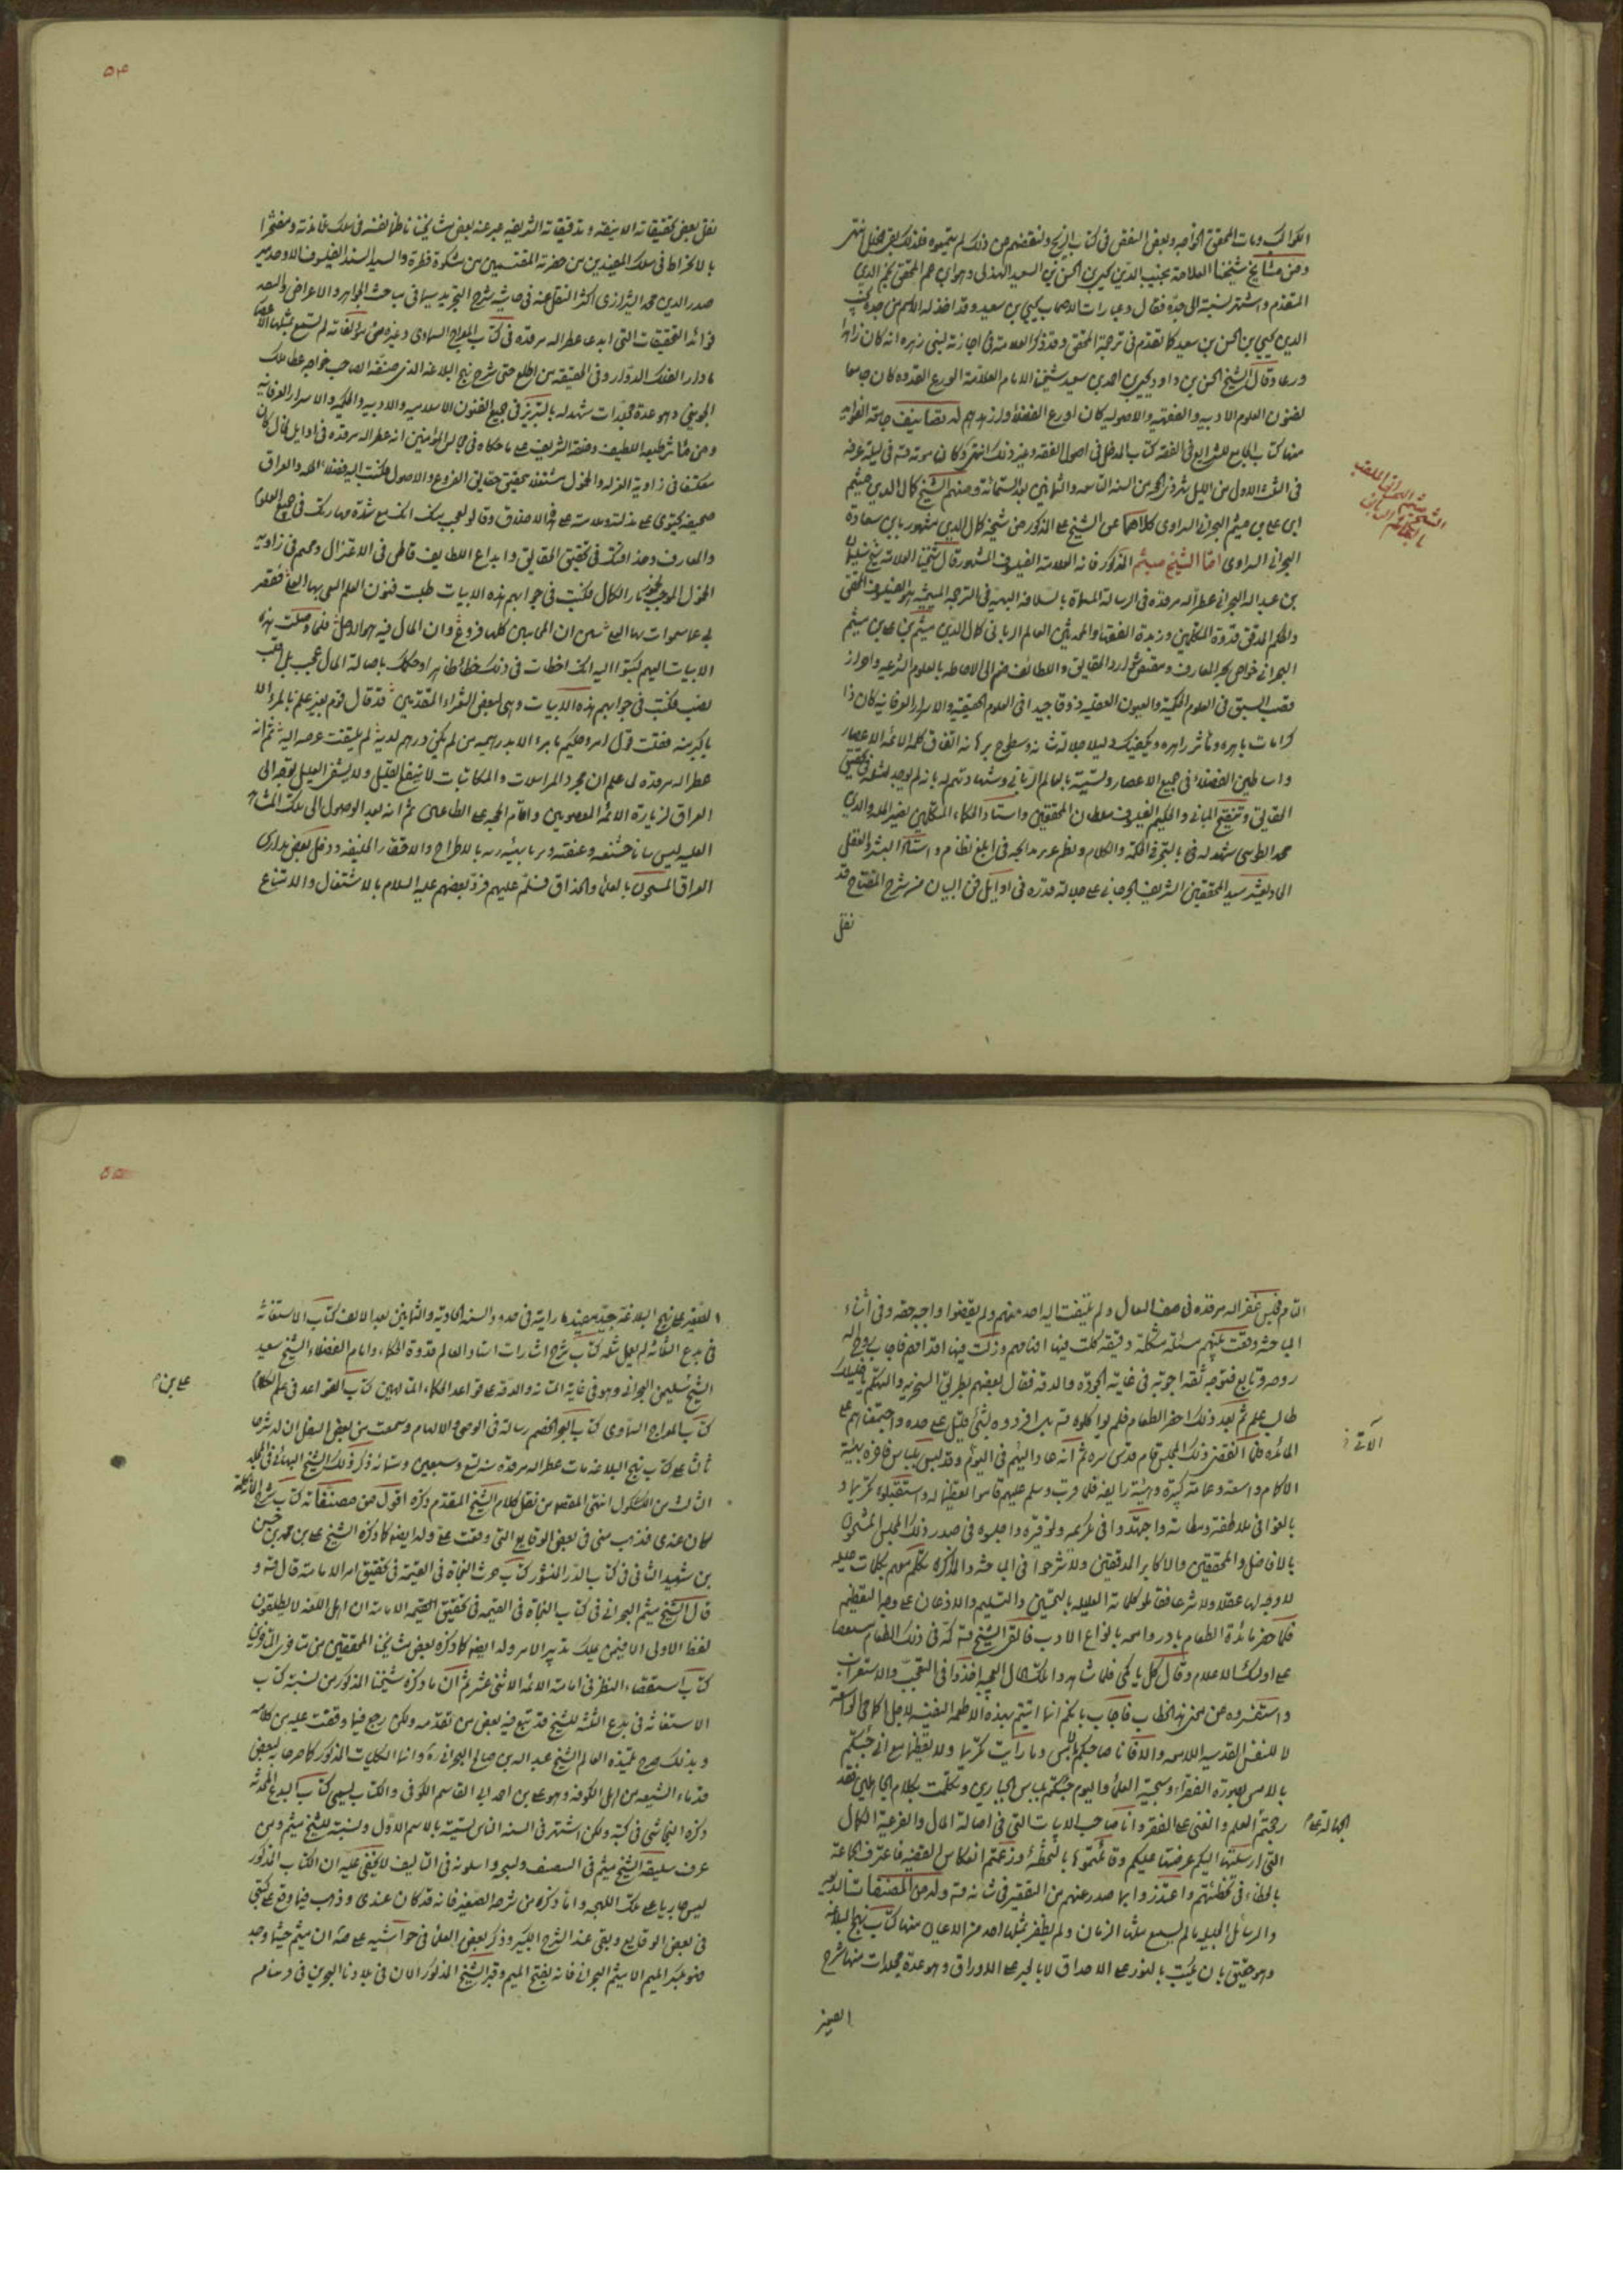 ومن مشايخ شيخنا العلامة نجيب الدين يحيى بن الحسن بن السعيد الهذلي وهو ابن عم المحقق نجم الدين
المتقدم واشتهر نسبته الى جده فقال وعبارات الاصحاب يحيى بن سعيد وقد اخذ له الاسم من جده
الدين يحيى بن الحسن بن سعيد كما تقدم في ترجمة المحقق وقد ذكر العلامة في اجازته لبني زهره انه كان زاهدا
ورعا وقال الشيخ الحسن بن داود يحيى بن احمد بن سعيد شيخنا الامام العلامة الورع القدوه كان جامعا
لفنون العلوم الادبيه والفقهيه والاصوليه كان اورع الفضلاء وازهدهم له تصانيف جامعة الفوايد
منها كتاب الجامع للشرايع في الفقه كتاب المدخل في اصول الفقه وغير ذلك انتهى وكان موته في ليلة عرفه
ابن علي بن ميثم البحراني
البحراني اما الشيخ ميثم المذكور فانه العلامة الفيلسوف المشهور قال شيخنا العلامة الشيخ سليمان
بن عبد الله البحراني عطر الله مرقده في الرسالة المسماة بالسلافة البهية في الترجمة الميثمية هو الفيلسوف المحقق
والحكيم المدقق قدوة المتكلمين وزبدة الفقهاء والمحدثين العالم الرباني كمال الدين ميثم بن علي بن ميثم
البحراني غواص بحر المعارف ومقتنص شوارد الحقايق واللطائف ضم الى الاحاطه بالعلوم الشرعيه واحراز
قصب السبق في العلوم الحكمية والفنون العقليه ذوقا جيدا في العلوم الحقيقيه والاسرار العرفانيه كان ذا
كرامات باهره ومآثر زاهره ويكفيك دليلا على جلالة شانه وسطوع برهانه اتفاق كلمة ائمة الاعصار
واساطين الفضلاء في جميع الاعصار وتسميته بالعالم الرباني وشهادتهم له بانه لم يوجد مثله في تحقيق
الحقايق وتنقيح المباني والحكيم الفيلسوف سلطان المحققين واستاد الحكماء والمتكلمين نصير الملة والدين
محمد الطوسي شهد له بالتبحر في الحكمة والكلام ونظم غرر مدايحه في ابلغ نظام واستاد البشر والعقل
الحادي عشر سيد المحققين الشريف الجرجاني على جلالة قدره في اوايل فن البيان من شرح المفتاح قد
نقل
٥٤
نقل بعض تحقيقاته الانيقه وتدقيقاته الشريفه عبر عنه ببعض مشايخنا ناظما نفسه في سلك تلامذته ومفتخرا
بالانخراط في سلك المستفيدين من حضرته المقتبسين من مشكوة فطرته والسيد السند الفيلسوف الاوحد مير
صدر الدين محمد الشيرازي اكثر النقل عنه في حاشية شرح التجريد سيما في مباحث الجواهر والاعراض والتقط
فرائد التحقيقات التي ابدعها عطر الله مرقده في كتاب المعراج السماوي وغيره من مؤلفاته لم تسمع بمثلها الاعصار
ما دار الفلك الدوار وفي الحقيقه من اطلع على شرح نهج البلاغه الذي صنفه للصاحب خواجه عطا ملك
الجويني وهو عدة مجلدات شهد له بالتبريز في جميع الفنون الاسلاميه والادبيه والحكميه والاسرار العرفانيه
ومن مآثر طبعه اللطيف وخلقه الشريف على ما حكاه في مجالس المؤمنين انه عطر الله مرقده في اوايل الحال كان
معتكفا في زاوية العزله والخمول مشتغلا بتحقيق حقايق الفروع والاصول فكتب اليه فضلاء الحله والعراق
صحيفه تحتوي على عذله وملامته على هذه الاخلاق وقالوا العجب منك انك مع شدة مهارتك في جميع العلوم
والمعارف وحذاقتك في تحقيق الحقايق وابداع اللطايف قاطن في الاعتزال ومخيم في زاوية
الخمول الموجب لخمود نار الكمال فكتب في جوابهم هذه الابيات طلبت فنون العلم ابغي بها العلى فقصر
لي عما سموت بها القل تبين ان المحاسن كلها فروع وان المال فيه هو الاصل فلما وصلت هذه
الابيات اليهم كتبوا اليه انك اخطات في ذلك خطا ظاهرا وحكمك باصالة المال عجب بل اقلب
تصب فكتب في جوابهم هذه الابيات وهي لبعض الشعراء المتقدمين قد قال قوم بغير علم ما المرء الا
باكبريه فقلت قول امرء حكيم ما المرء الا بدرهميه من لم يكن درهم لديه لم تلتفت عرسه اليه ثم انه
عطر الله مرقده لما علم ان مجرد المراسلات والمكاتبات لا تنفع الغليل ولا تشفي العليل توجه الى
العراق لزيارة الائمه المعصومين واقامة الحجه على الطاعنين ثم انه بعد الوصول الى تلك المشاهد
العليه لبس ثيابا خشنه عتيقه وتزيا بهيئة رثه بالاطراح والاحتقار خليقه ودخل بعض مدارس
العراق المشحون بالعلماء والحذاق فسلم عليهم فرد بعضهم عليه السلام بالاستثقال والامتناع
التام فجلس عطر الله مرقده في صف النعال ولم يلتفت اليه احد منهم ولم يقضوا واجب حقه وفي اثناء
المباحثه وقعت بينهم مسئلة مشكلة دقيقه كلت فيها افهامهم وزلت فيها اقدامهم فاجاب
روحه وتابع فتوحه بتسعه اجوبه في غاية الجوده والدقه فقال بعضهم بطريق السخريه والتهكم
طالب علم ثم بعد ذلك احضر الطعام فلم يواكلوه بل افردوه بشيء قليل على حده واجتمعوا هم على
المائده فلما انقضى ذلك المجلس قام قدس سره ثم انه عاد اليهم في اليوم الاتي وقد لبس ملابس فاخره بهية
الاكمام واسعه وعمامة كبيره وهيئة رايعه فلما قرب وسلم عليهم قاموا تعظيما له واستقبلوه تكريما و
بالغوا في ملاطفته ومطايبته واجتهدوا في تكريمه وتوقيره واجلسوه في صدر ذلك المجلس المشحون
بالافاضل والمحققين والاكابر المدققين ولما شرعوا في المباحثه والمذاكره تكلم معهم بكلمات عليله
لا وجه لها عقلا ولا شرعا فقابلوا كلماته العليله بالتحسين والتسليم والاذعان على وجه التعظيم
فلما حضر مائدة الطعام بادروا معه بانواع الادب فالقى الشيخ كمه في ذلك الطعام مستعتبا
على اولئك الاعلام وقال كل يا كمي فلما شاهدوا تلك الحال العجيبه اخذوا في التعجب والاستغراب
واستفسروه عن معنى هذا الخطاب فاجاب بانكم انما اتيتم بهذه الاطعمه النفيسه لاجل اكمامي الواسعه
لا للنفس القدسيه اللامعه والا فانا صاحبكم بالامس وما رايت تكريما ولا تعظيما مع اني جئتكم
بالامس بصورة الفقراء وسجية العلماء واليوم جئتكم بلباس الجبارين وتكلمت بكلام الجاهلين فقد
رجحتم الجهالة على العلم والغنى على الفقر وانا صاحب الابيات التي في اصالة المال وفرعية الكمال
التي ارسلتها اليكم وعرضتها عليكم وقابلتموها بالتخطئه وزعمتم انعكاس القضيه فاعترف الجماعه
بالخطاء في تخطئتهم واعتذروا بما صدر عنهم من التقصير في شانه وله من المصنفات البديعه
والرسائل الجليله ما لم يسمح بمثلها الزمان ولم يظفر بمثلها احد من الاعيان منها كتاب نهج البلاغه
وهو حقيق بان يكتب بالنور على الاحداق لا بالحبر على الاوراق وهو عدة مجلدات منها شرح
الصغير
٥٥
الصغير على نهج البلاغه جيد مفيد رايته في حدود السنه الحاديه والثمانين بعد الالف كتاب الاستغاثه
في بدع الثلاثه لم يعمل مثله كتاب شرح اشارات استاد العالم قدوة الحكماء وامام الفضلاء الشيخ سعيد
الشيخ سليمان البحراني وهو في غاية المتانه والدقه على قواعد الحكماء المتالهين كتاب القواعد في علم الكلام
كتاب المعراج السماوي كتاب البحر الخضم رسالة في الوحي والالهام وسمعت من بعض الثقات ان له شرحا
ثالثا على كتاب نهج البلاغه مات عطر الله مرقده سنه تسع وسبعين وستمائه ذكر ذلك الشيخ البهائي في المجلد
الثالث من الكشكول انتهى المقصود من نقل كلام الشيخ المقدم ذكره اقول ومن مصنفاته كتاب شرح
كان عندي فذهب مني في بعض الوقايع التي وقعت علي وله ايضا كما ذكره الشيخ علي بن محمد بن حسن
بن شهيد الثاني في كتاب الدر المنثور كتاب النجاة في القيمه في تحقيق امر الامامه قال
قال الشيخ ميثم البحراني في كتاب النجاة في القيمه في تحقيق الامامه ان اهل اللغه لا يطلقون
لفظ الاولى الا فيمن يملك تدبير الامر وله ايضا كما ذكره بعض مشايخنا المحققين من متاخري
كتاب استقصاء النظر في امامة الائمه الاثني عشر ثم ان ما ذكره شيخنا المذكور من نسبته كتاب
الاستغاثه في بدع الثلثه للشيخ قد تبع فيه بعض من تقدمه ولكن رجع فيما وقفت عليه من كلامه
وبذلك صرح تلميذه العالم الشيخ عبد الله بن صالح البحراني وانما الكتاب المذكور كما صرحا به لبعض
قدماء الشيعه من اهل الكوفه وهو علي بن احمد ابي القاسم الكوفي والكتاب يسمى كتاب البدع المحدثه
ذكره النجاشي في كتبه ولكن اشتهر في السنه الناس تسميته بالاسم الاول ونسبته للشيخ ميثم ومن
عرف سليقة الشيخ ميثم في التصنيف ولهجته واسلوبه في التاليف لا يخفى عليه ان الكتاب المذكور
ليس جاريا على تلك اللهجه واما ذكره من شرحه الصغير فانه قد كان عندي وذهب فيما وقع على كتبي
في بعض الوقايع وبقي عندي الشرح الكبير وذكر بعض العلماء في حواشيه على ان ميثم حيثما وجد
فهو بكسر الميم الا ميثم البحراني فانه بفتح الميم وقبر الشيخ المذكور الان في بلادنا البحرين في